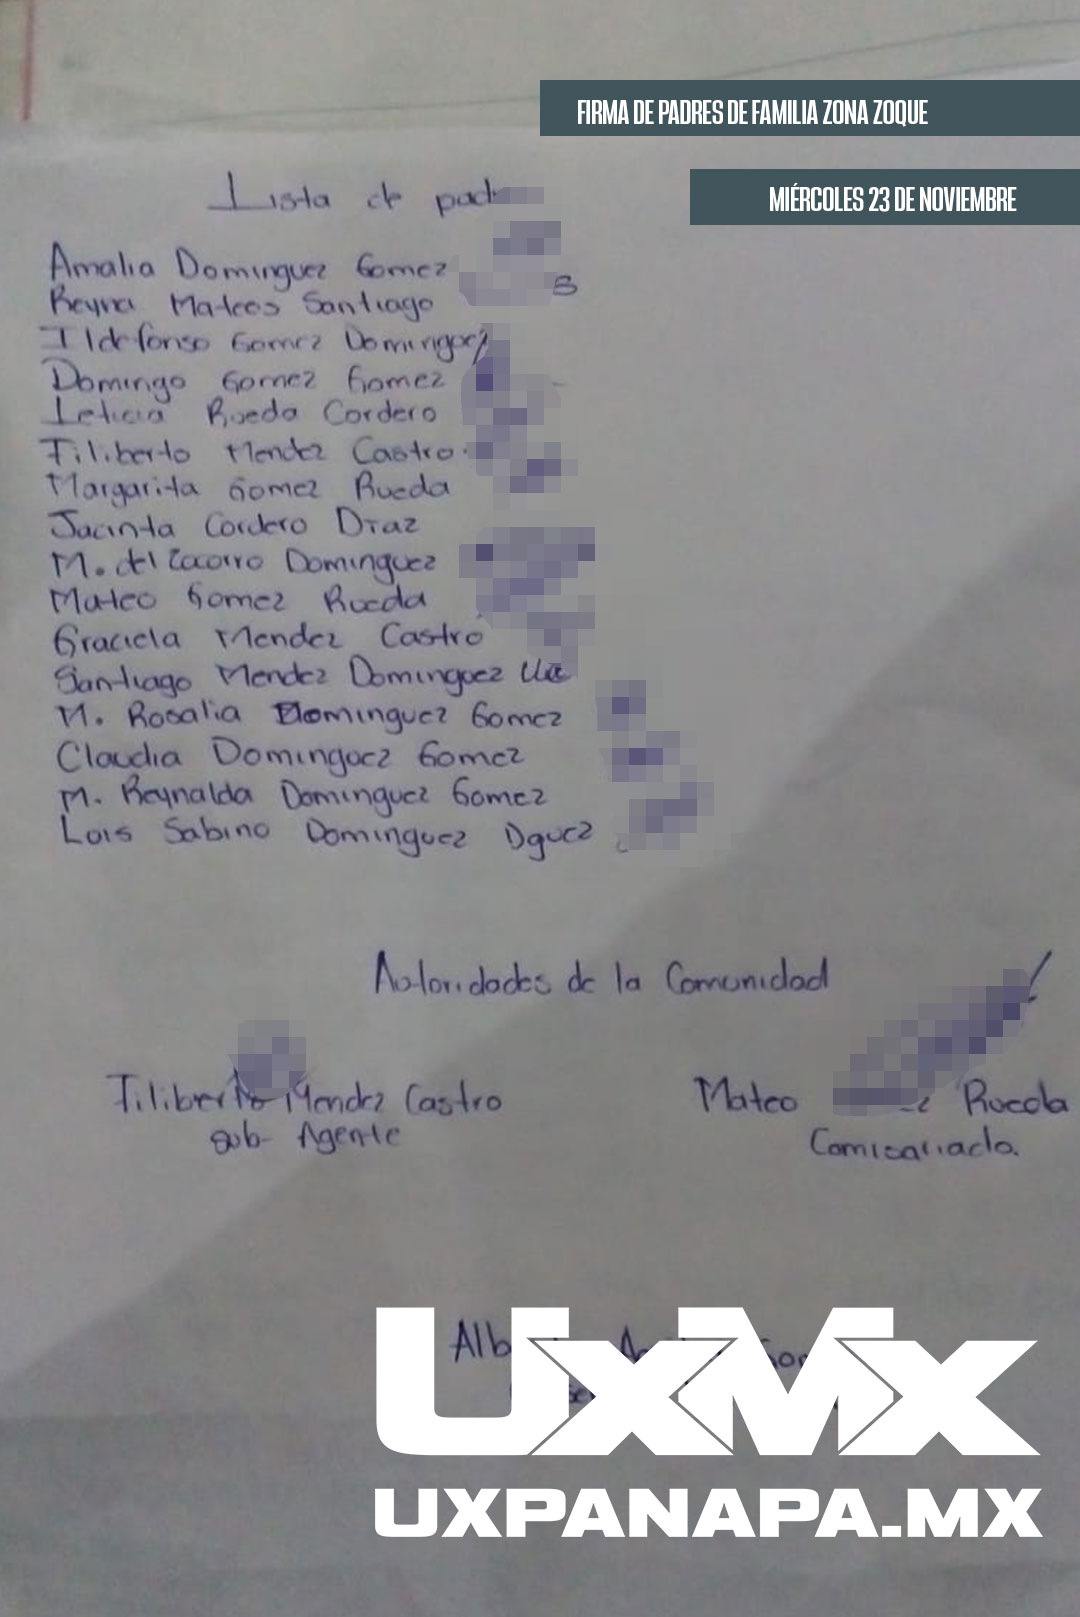 FIRMA DE PADRES DE FAMILIA ZONA ZOQUE
MIÉRCOLES 23 DE NOVIEMBRE
Lista de
Amalia Dominguez Gomez
Reyna Mateos Santiago
Ildefonso Gomez Dominguez
Domingo Gomez Gomez
Leticia Rueda Cordero
Filiberto Mendez Castro.
Margarita Gomez Rueda
Jacinta Cordero Diaz
M. del Zocorro Dominguez
Mateo Gomez Rueda
Graciela Mendez Castro
Santiago Mendez Dominguez
M. Rosalia Dominguez Gomez
Claudia Dominguez Gomez
M. Reynalda Dominguez Gomez
Luis Sabino Dominguez Dguez
Autoridades de la Comunidad
Filiberto Mendez Castro
sub- Agente
Mateo Rueda
Comisariado.
UxMx
UXPANAPA.MX